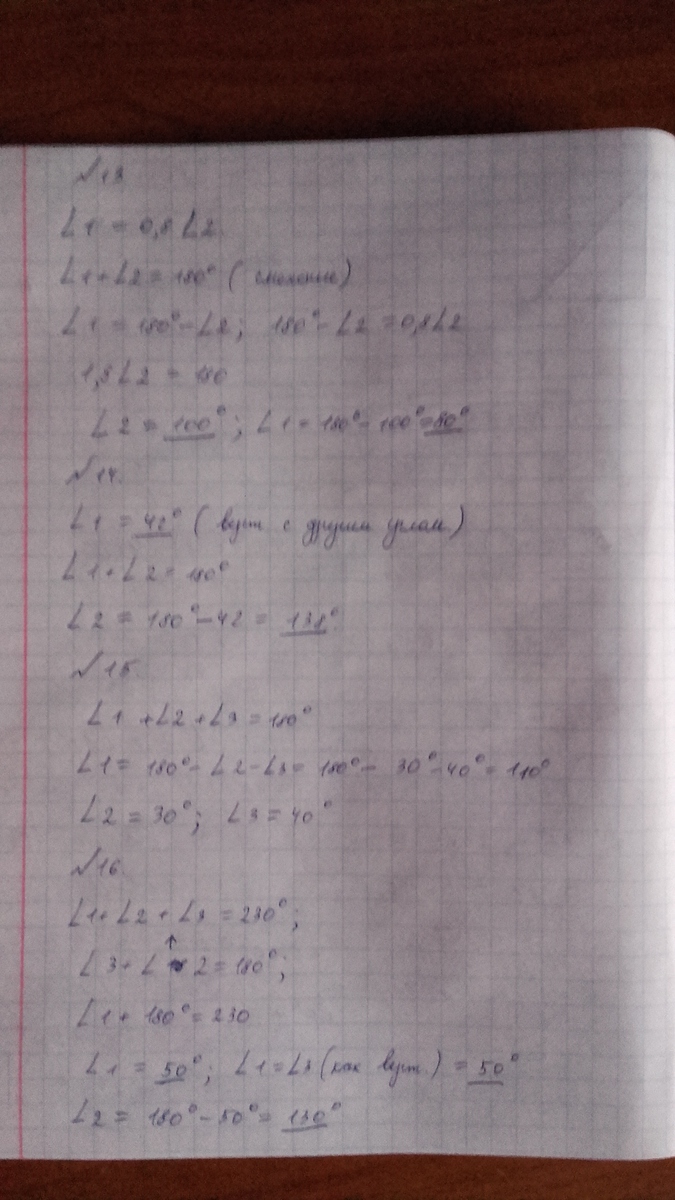 №13
∠1 = 0,8 ∠2
∠1+∠2 = 180° (смежные)
∠1 = 180°-∠2; 180°-∠2 = 0,8∠2
1,8∠2 = 180
∠2 = 100°; ∠1 = 180°-100°=80°
№14.
∠1 = 42° (верт с другим углом.)
∠1+∠2 = 180°
∠2 = 180°-42 = 138°
№15.
∠1 +∠2 +∠3 = 180°
∠1 = 180°- ∠2-∠3 = 180°- 30°-40°= 110°
∠2 = 30°; ∠3 = 40°
№16.
∠1+∠2 +∠3 = 230°;
∠3+∠2 = 180°;
∠1 + 180° = 230
∠1 = 50°; ∠1=∠3 (как верт.) = 50°
∠2 = 180°-50°= 130°